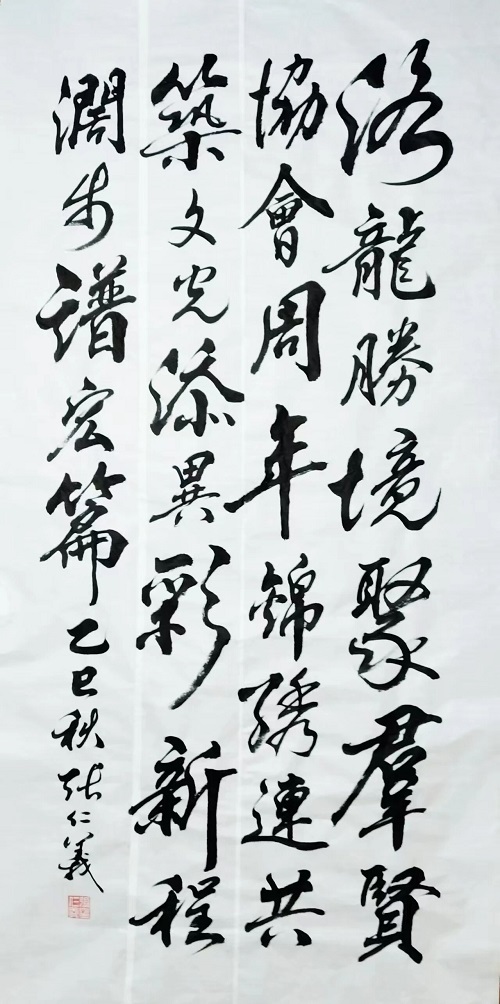 洛龍勝境聚羣賢
協會周年錦綉連共
築文光添異彩新程
濶步譜宏篇乙巳秋張仁義